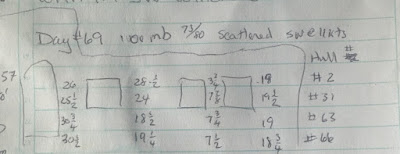 Day #69 100 mb 73/80 scattered swell
Hull #
57 26 28 1/2 3 3/4 19 #2
25 1/2 24 7 5/8 19 1/2 #31
30 3/4 18 1/2 7 3/4 19 #63
30 1/2 19 1/4 7 1/2 18 3/4 #66